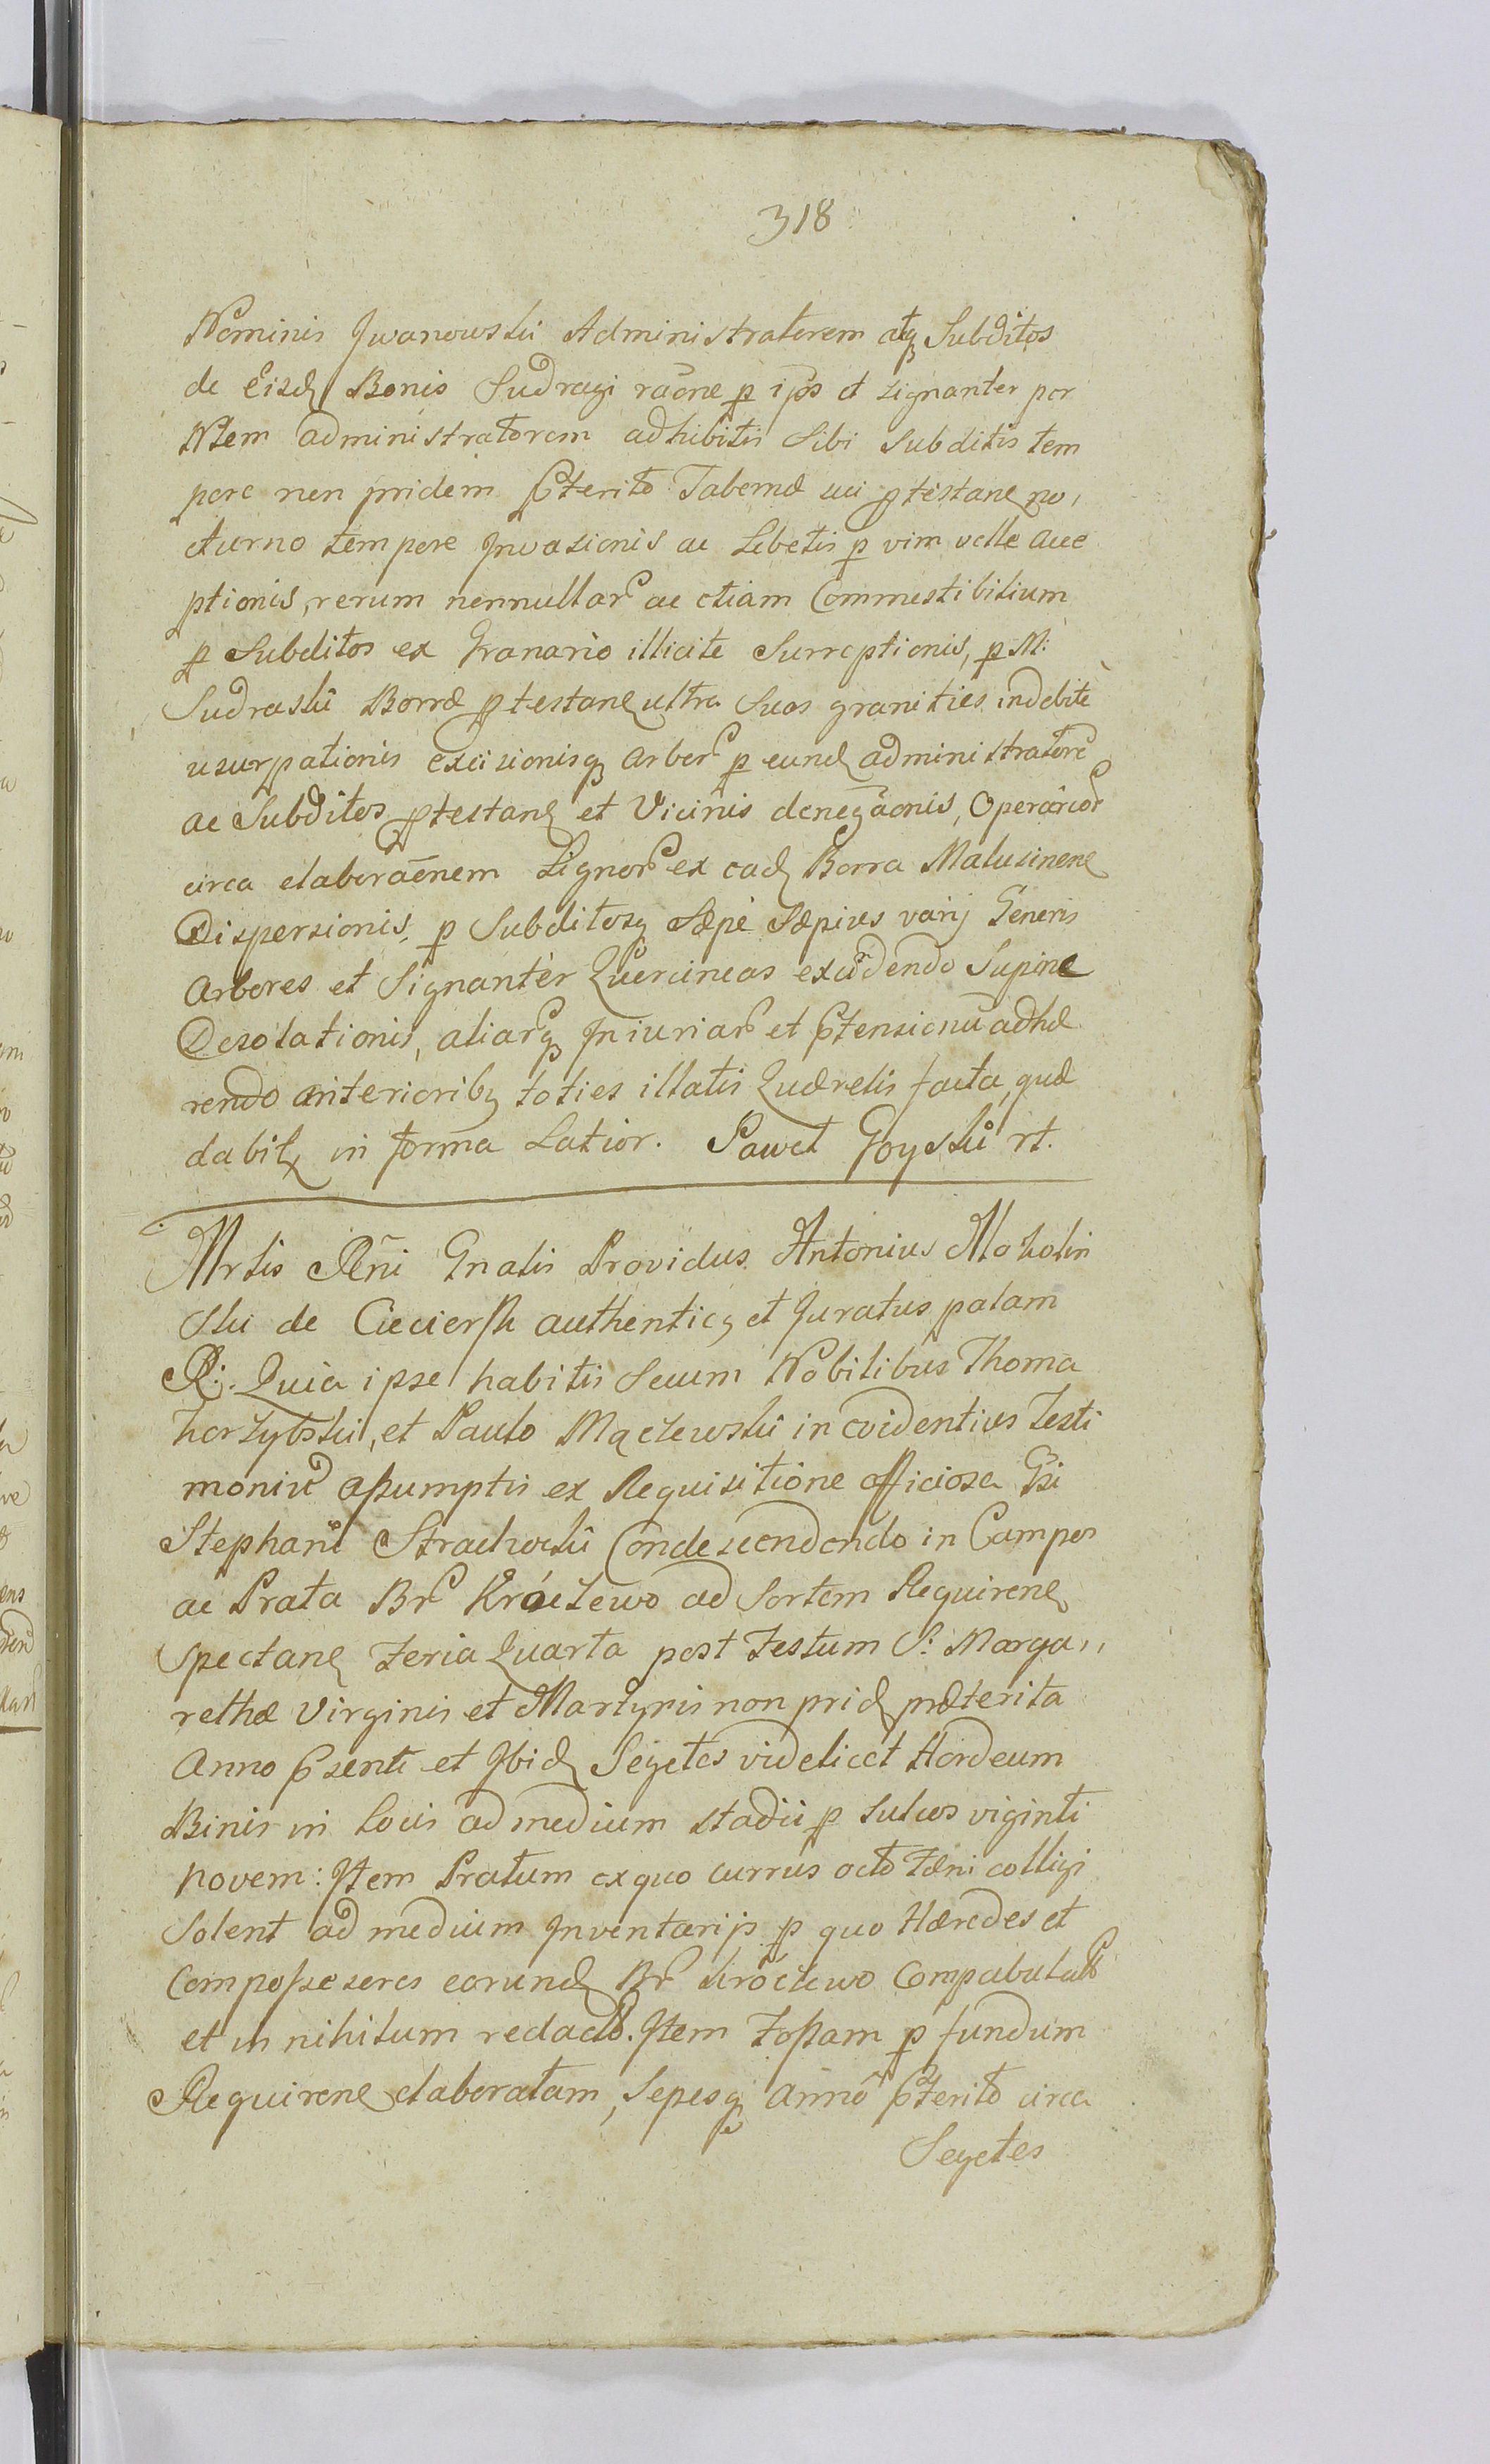 318
Nominis Jwanowski Administratorem atq₃ Subditos
de Eisd Bonis Sudragi raōne p ips et signanter per
Nōlem administratorem adhibitis Sibi Subditis tem
pore non pridem Pterito Tabernæ sui ptestanę no,
cturno tempore Jnvasionis ac Lebetis p vim velle acce
ptionis, rerum nonnullar ac etiam Commestibilium
p Subditos ex Granario illicite Surreptionis, p M:
Sudraski Borræ ptestanę ultra Suos granities indebitè
usurpationis excisionisq₃ arbor p eund administratore
ac Subditos ptestanę et Vicinis denegāonis, Operarior
circa elaboraōnem Lignor ex ead Borra Malusinenę
Dispersionis, p Subditosq Sæpè Sæpius varij Generis
Arbores et Signantèr Quercineas exscindendo Supinè
Desolationis, aliarq₃ Jniuriar et Ptensionū adhæ
rendo anterioriby toties illatis Quærelis facta, quæ
dabitx in forma Latior. Paweł Goyski rt.
Mrtis Rñi Gnalis Providus Antonius Mokolin
ski de Ciecierß authenticy et Juratus palam
R: Quia ipse habitis Secum Nobilibus Thoma
Zorzybski, et Paulo Mączewski in evidentius Testi
moniū aßumptis ex Requisitione officiosa Gsi
Stephani Strachocki Condescendendo in Campos
ac Prata Br Króczewo ad Sortem Requirenę
Spectanę Feria Quarta post Festum S: Marga,,
rethæ Virginis et Martyris non prid præterita
Anno Psenti et Jbid Segetes videlicet Hordeum
Binis in Locis ad medium stadii p Sulcos viginti
novem: Jtem Pratum ex quo currus octo Fæni colligi
Solent ad medium Jnventarijs p quo Hæredes et
Compoßesores eorund Br Króczewo Compabulat
et in nihilum redact. Jtem Foßam p fundum
Requirenę elaboratam, Sepesq₃ annō Pterito circa
Segetes